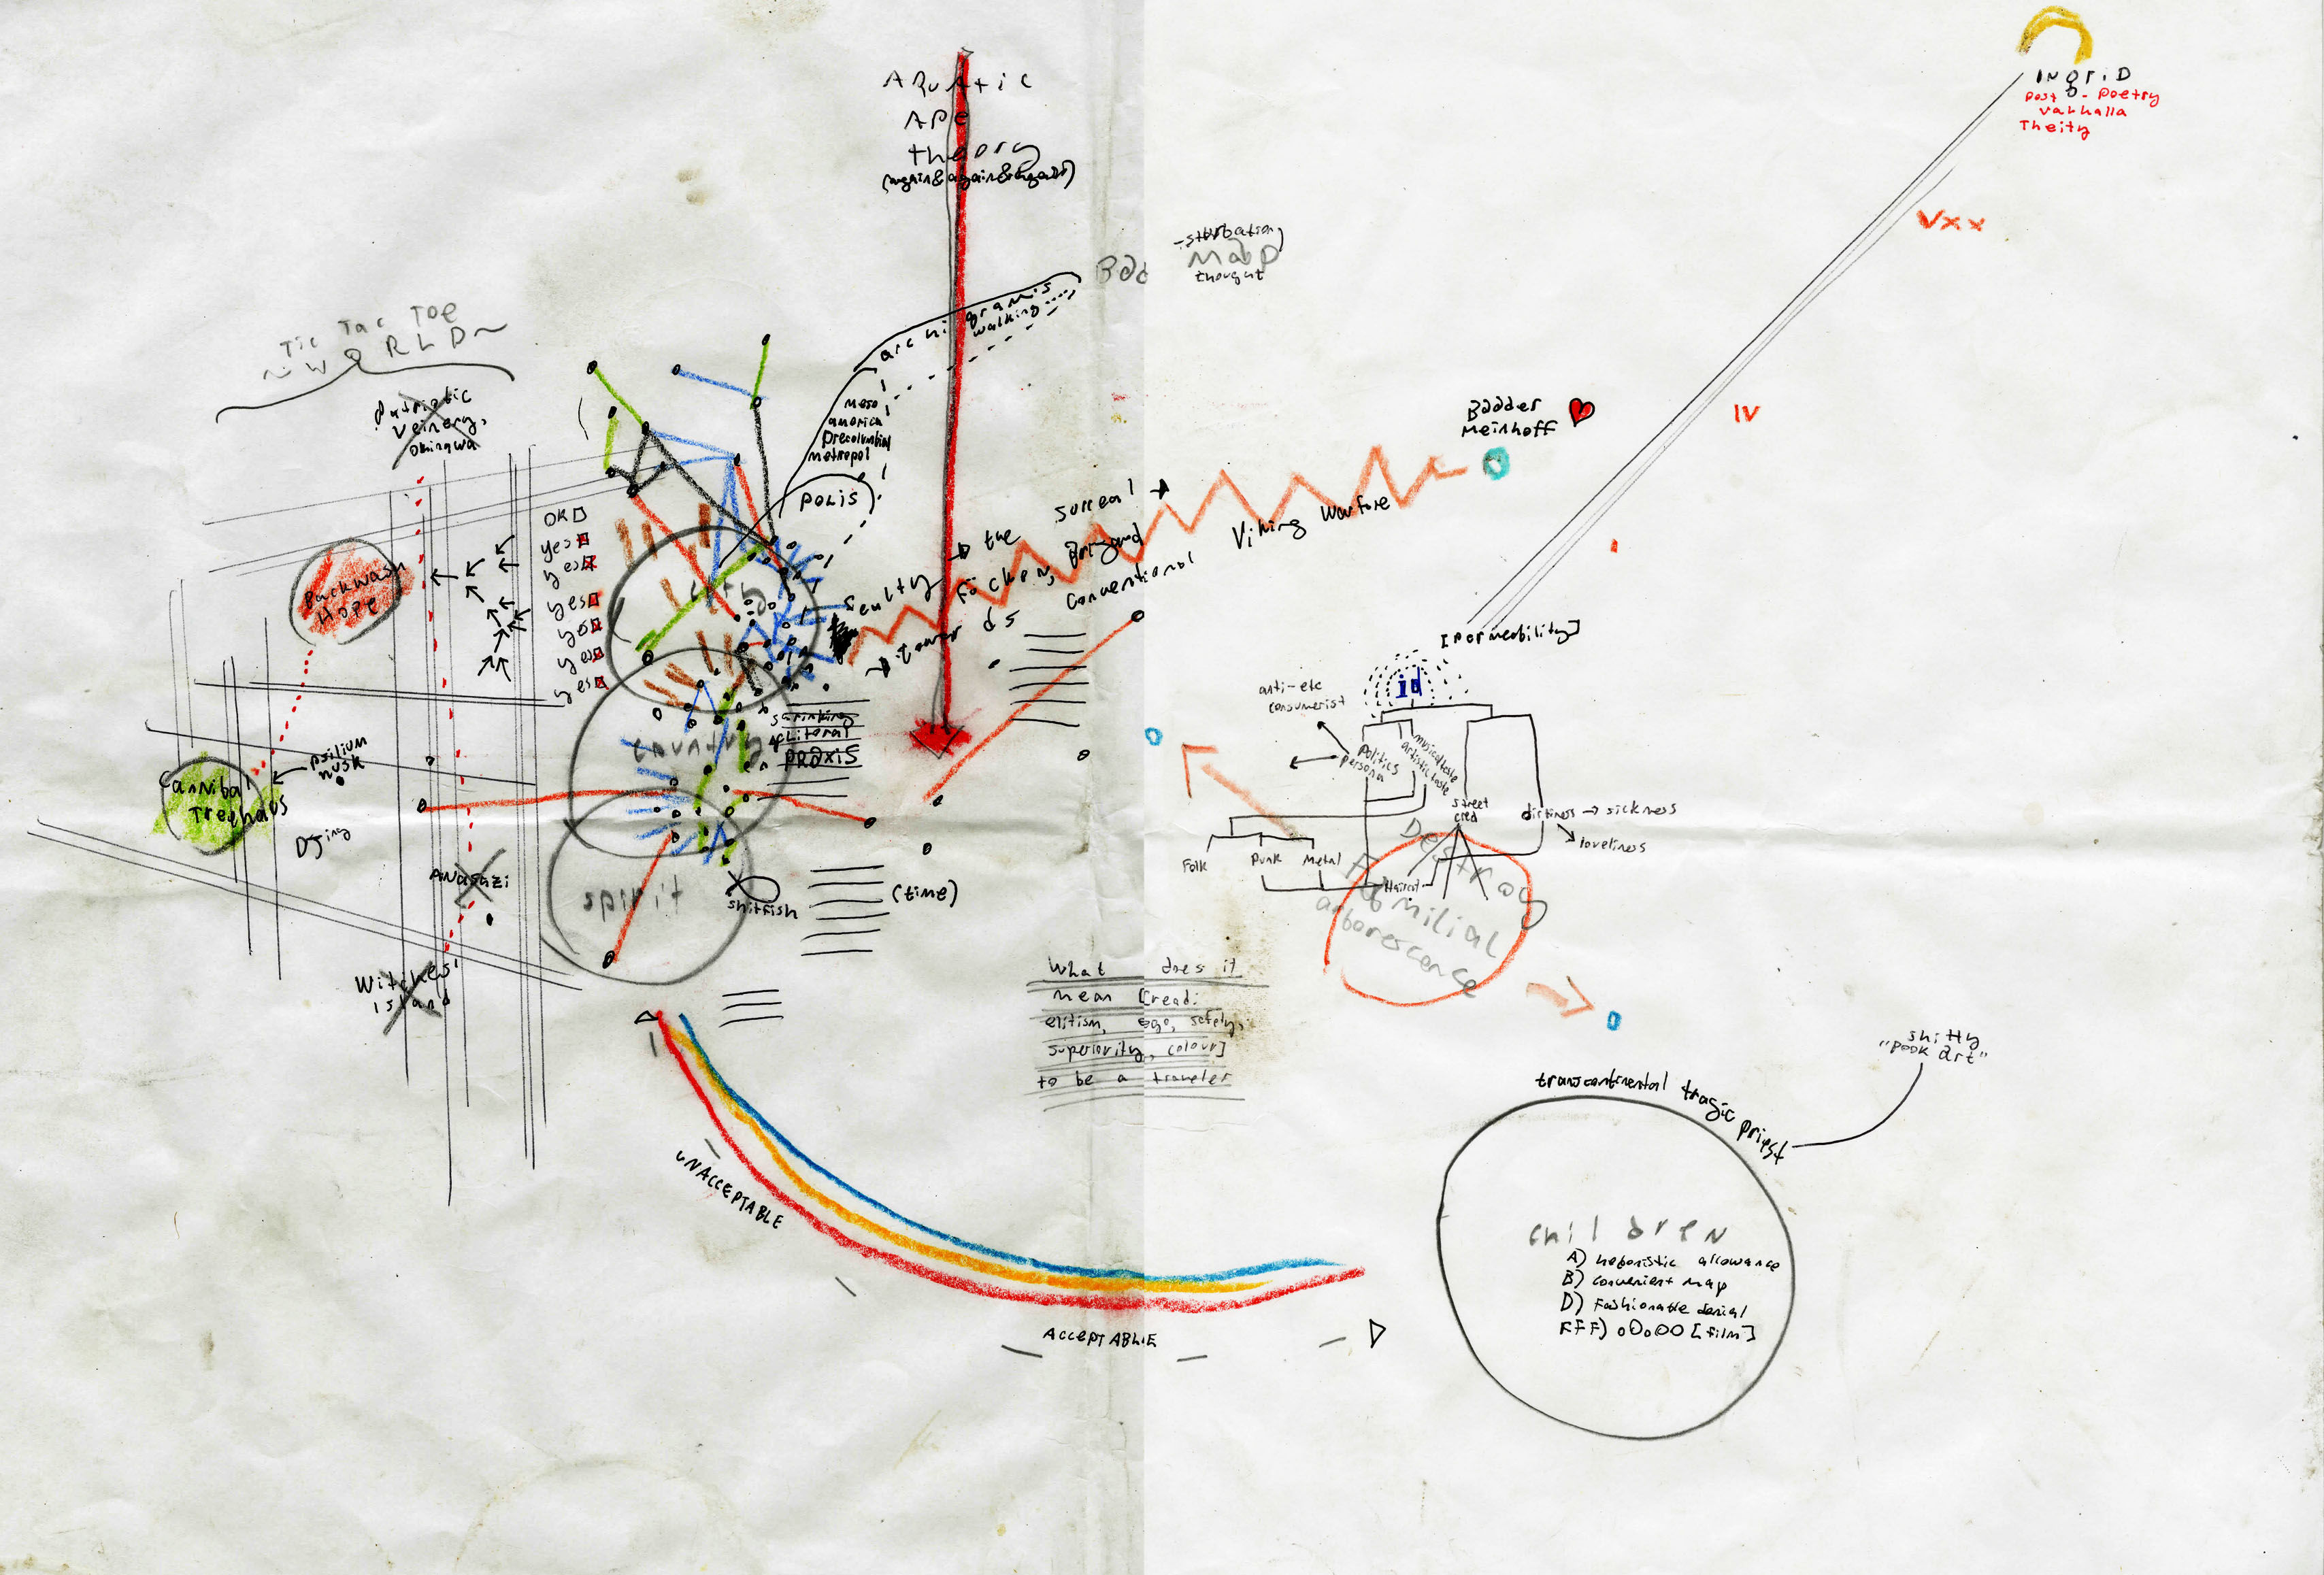 AquAtic
APe
theory
(again&again&again)
INgriD
Post-Poetry
Valhalla
Theity
Vxx
IV
I
-sturbation
Map
thought
Bad
archi gramis
walking
Tic Tac Toe
~WORLD~
Patriotic
Veinery,
meso
america
precolumbial
metropol
POLIS
Badder
Meinhoff
OK
yes
yes
yes
yes
yes
yes
Backwash
Hope
city
→ the surreal →
Viking Warfare
conventional
→ towards
[Permeability]
id
anti-etc
consumerist
Politics
persona
musical taste
artistic taste
street
cred
dirtiness → sickness
loveliness
Folk
Punk
Metal
Haircut
Destroy
Familial
arborescence
country
shrinking
literal
praxis
psilium
husk
Cannibal
Treehaus
DJing
ANasazi
spirit
shitfish
(time)
Witches'
island
What does it
mean [read:
elitism, ego, safety,
superiority, colour]
to be a traveler
shitty
"pook art"
transcontinental tragic priest
UNACCEPTABLE
ACCEPTABLE
children
A) hedonistic allowance
B) convenient map
D) Fashionable denial
FFF) oOoOO [film]